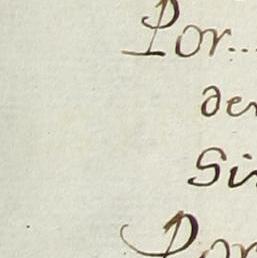 Por...
de
Si
Por